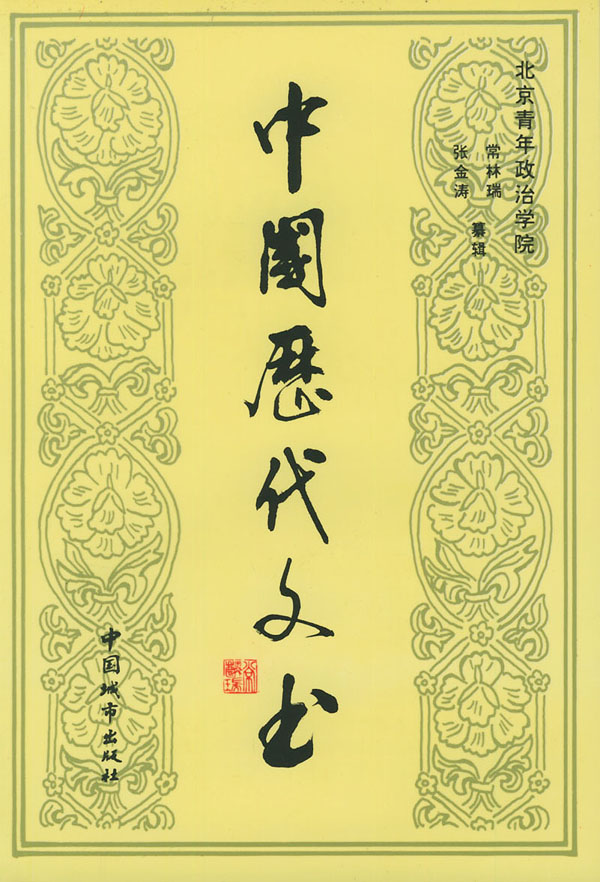 北京青年政治学院
常林瑞
张金涛
纂辑
中國歷代文书
中国城市出版社